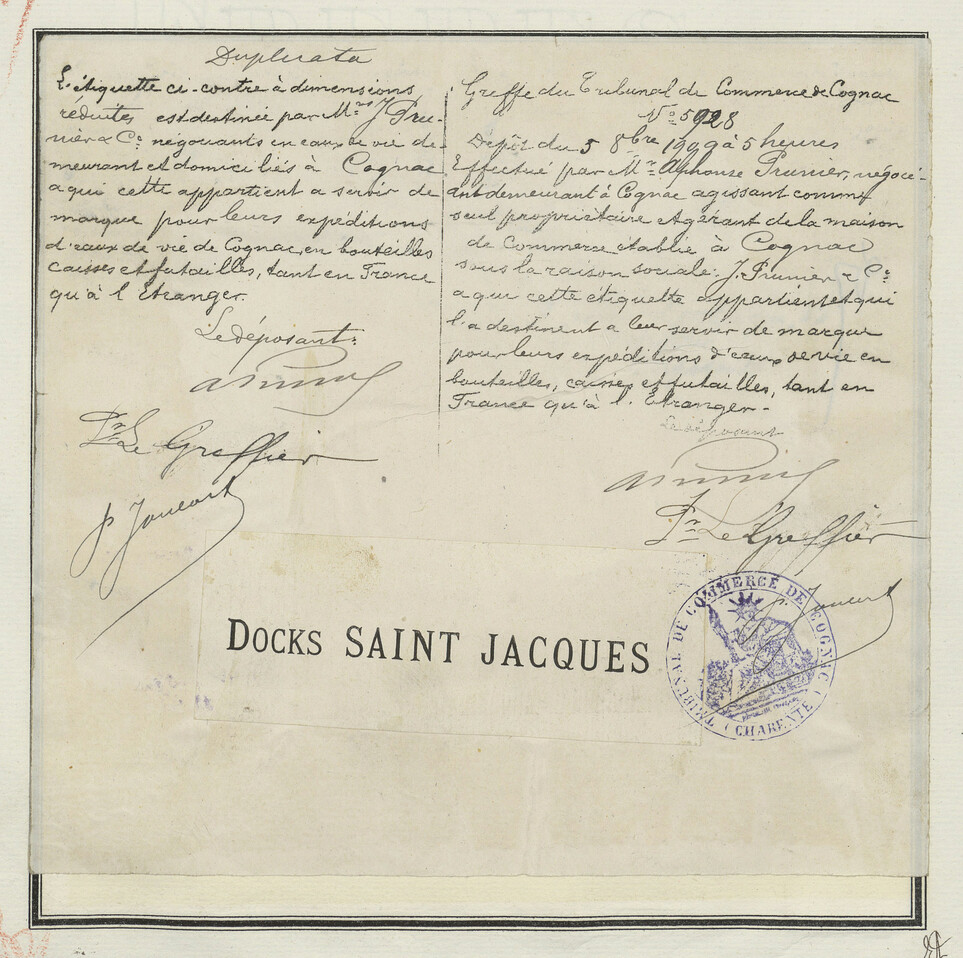 Duplicata
L'étiquette ci-contre à dimensions
réduites est destinée par Mrs J. Pru-
nier & Co. négociants en eaux de vie de-
meurant et domiciliés à Cognac
a qui cette appartient a servir de
marque pour leurs expéditions
d'eaux de vie de Cognac, en bouteilles
caisses et futailles, tant en France
qu'à l'Etranger.
Le déposant:
Pr Le Greffier
Greffe du Tribunal de Commerce de Cognac
No 5928
Dépôt du 5 8bre 1909 à 5 heures
Effectué par Mr Alphonse Prunier, négoci-
ant demeurant à Cognac agissant comme
seul propriétaire et gérant de la maison
de Commerce établie à Cognac
sous la raison sociale: J. Prunier & Co.
a qui cette étiquette appartient et qui
l'a destinent a leur servir de marque
pour leurs expéditions d'eaux de vie en
bouteilles, caisses et futailles, tant en
France qu'à l'Etranger-
Le déposant
Pr Le Greffier
DOCKS SAINT JACQUES
TRIBUNAL DE COMMERCE DE COGNAC
(CHARENTE)